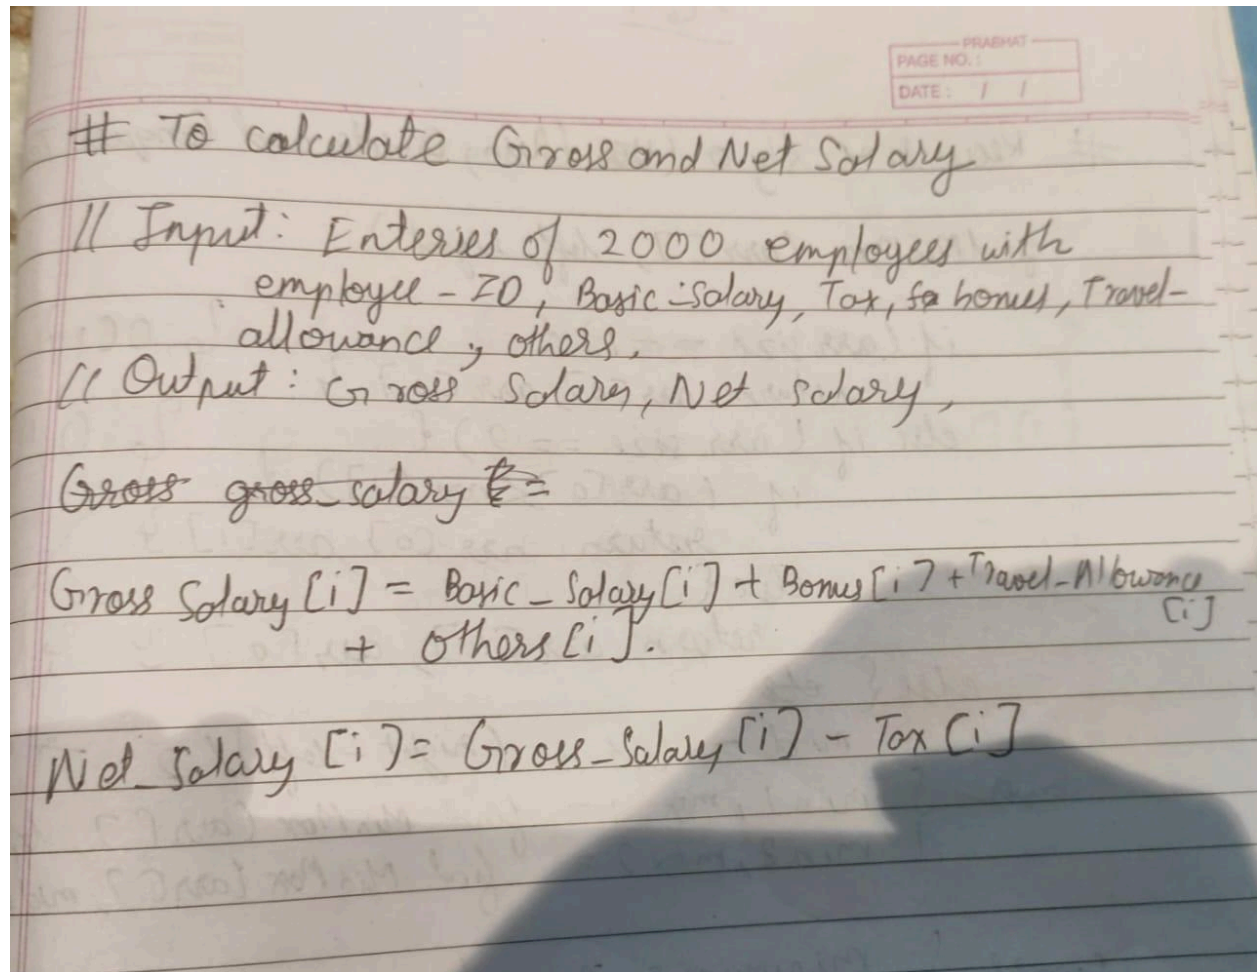 PRABHAT
PAGE NO.:
DATE: / /
# To calculate Gross and Net Salary
// Input: Enteries of 2000 employees with
employee-ID, Basic-Salary, Tax, bonus, Travel-
allowance, others.
// Output: Gross Salary, Net Salary,
Gross gross_salary =
Gross Salary [i] = Basic_Salary [i] + Bonus [i] + Travel-Allowance
[i]
+ Others [i].
Net_Salary [i] = Gross_Salary [i] - Tax [i]